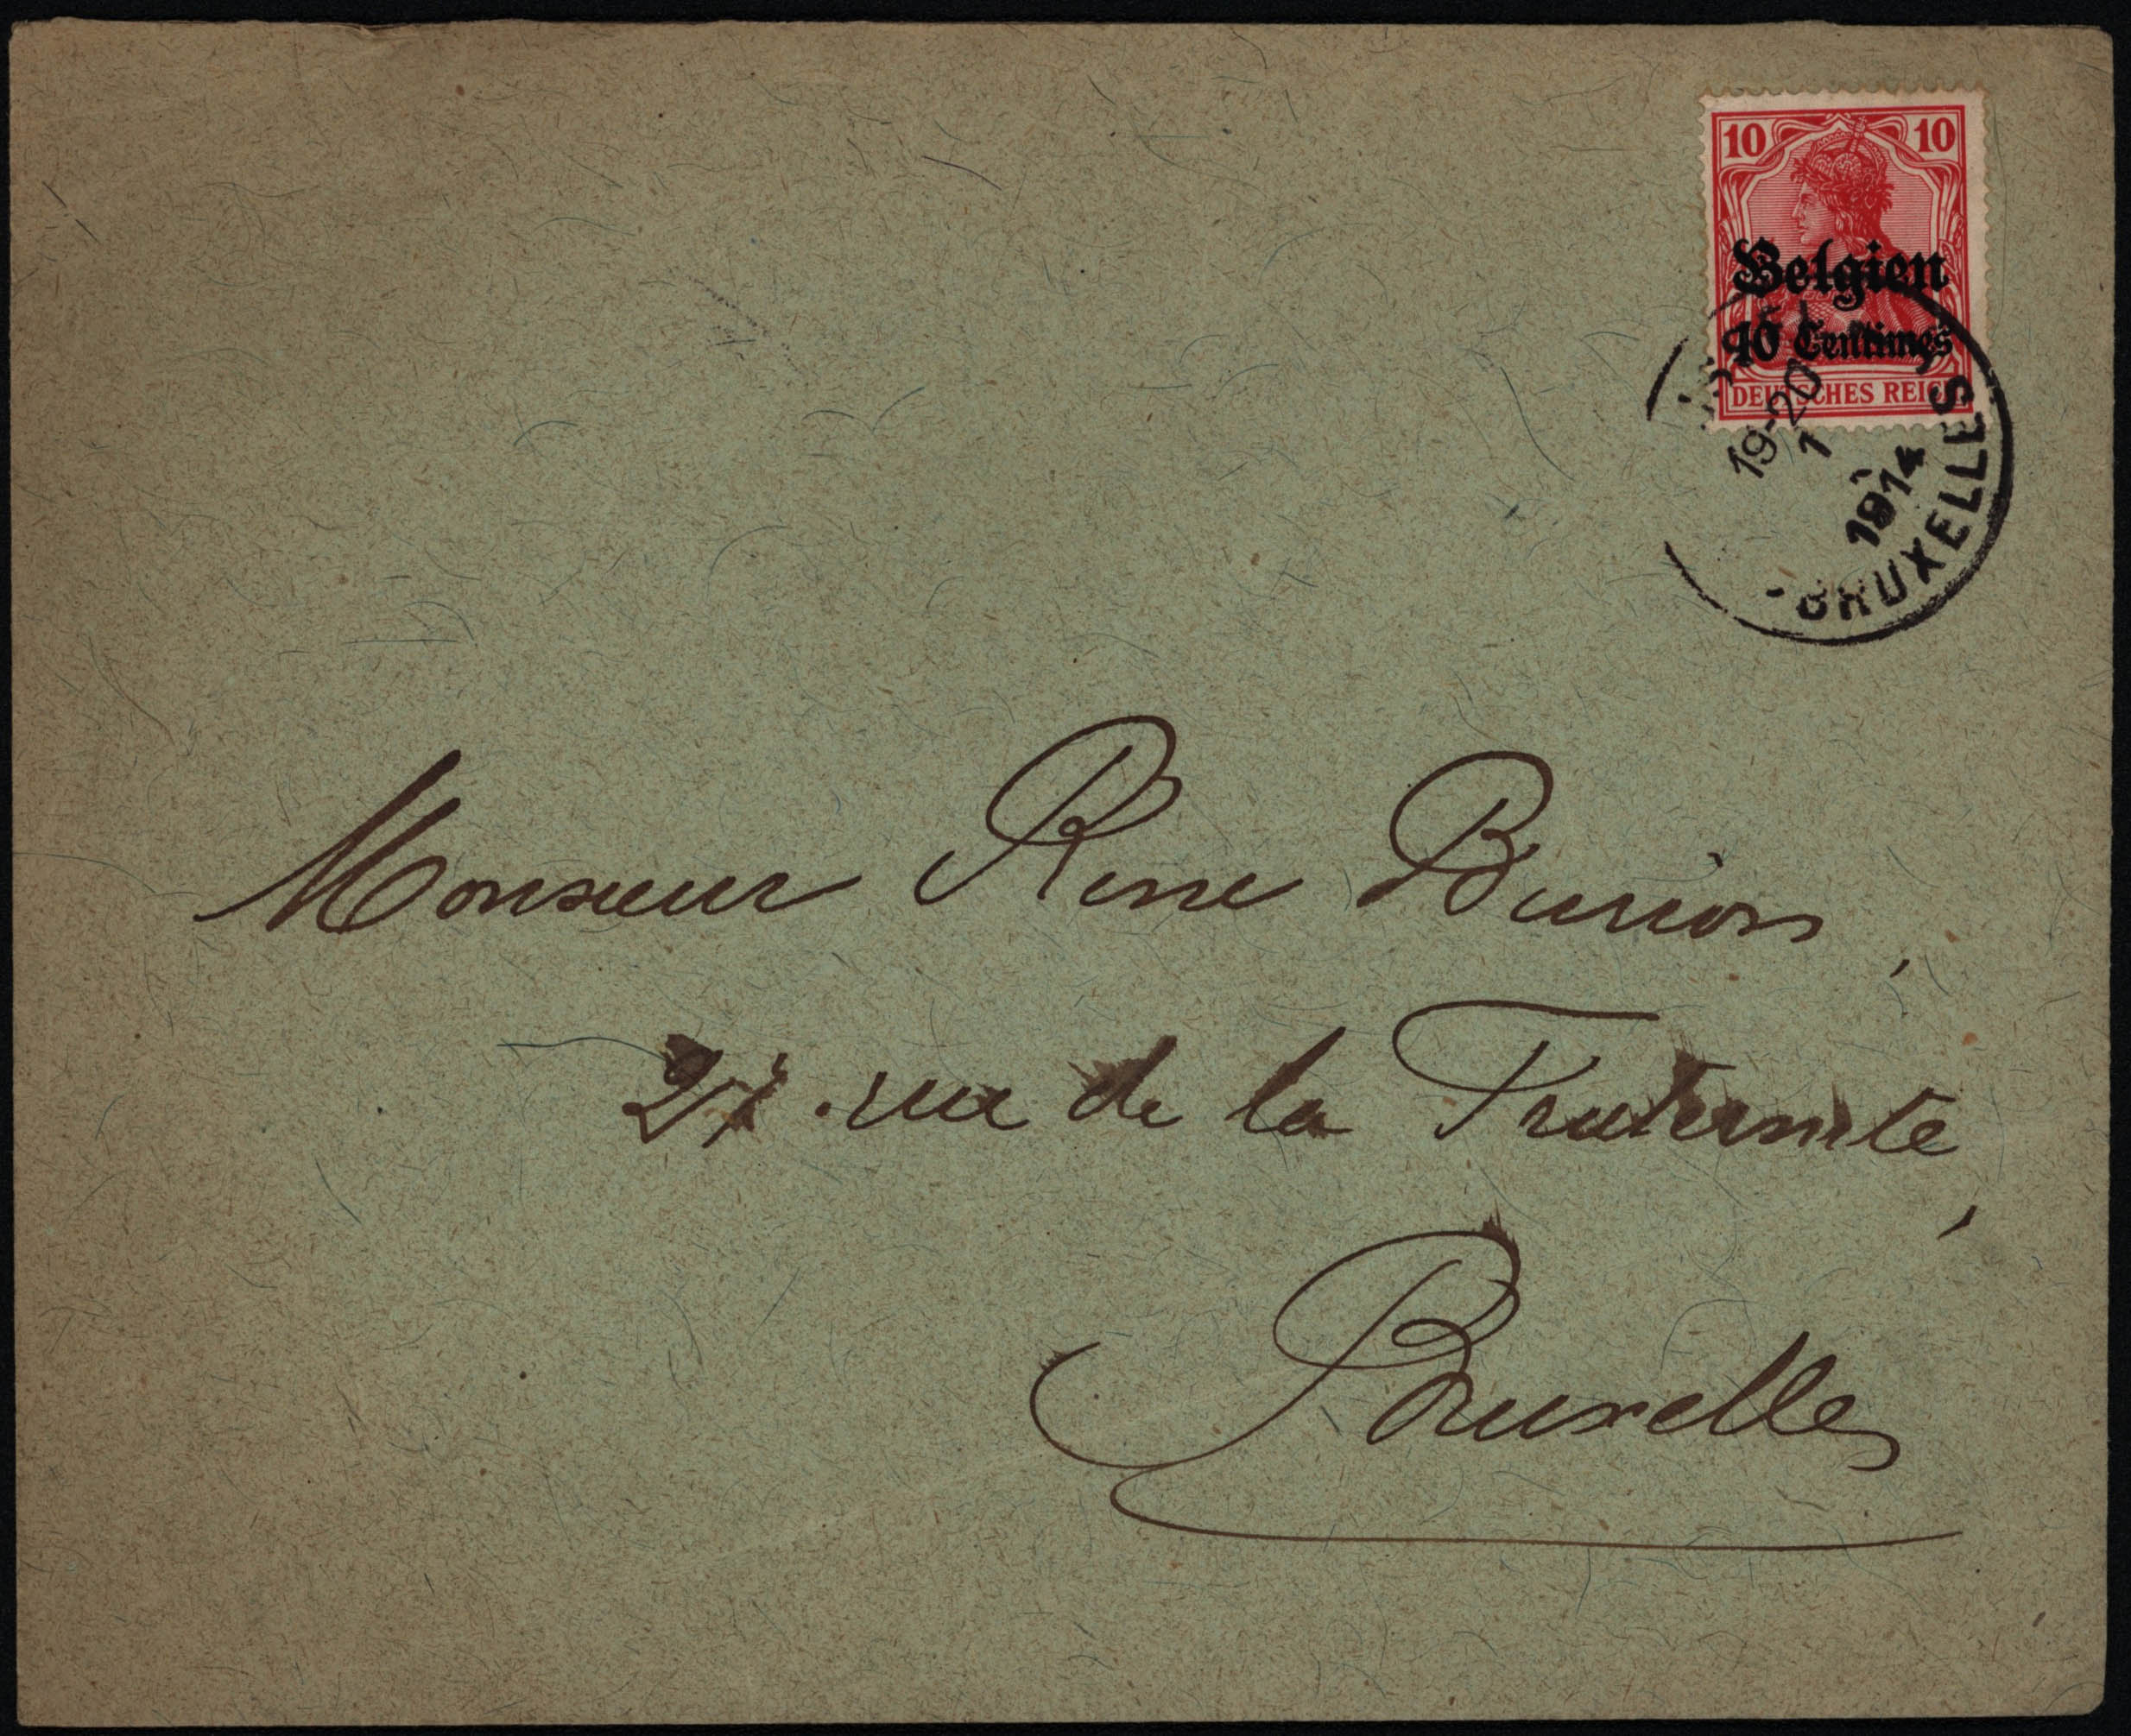 10 10
Belgien
10 Centimes
DEUTSCHES REICH
19-20
1
1914
BRUXELLES
Monsieur René
27 rue de la Fraternité,
Bruxelles